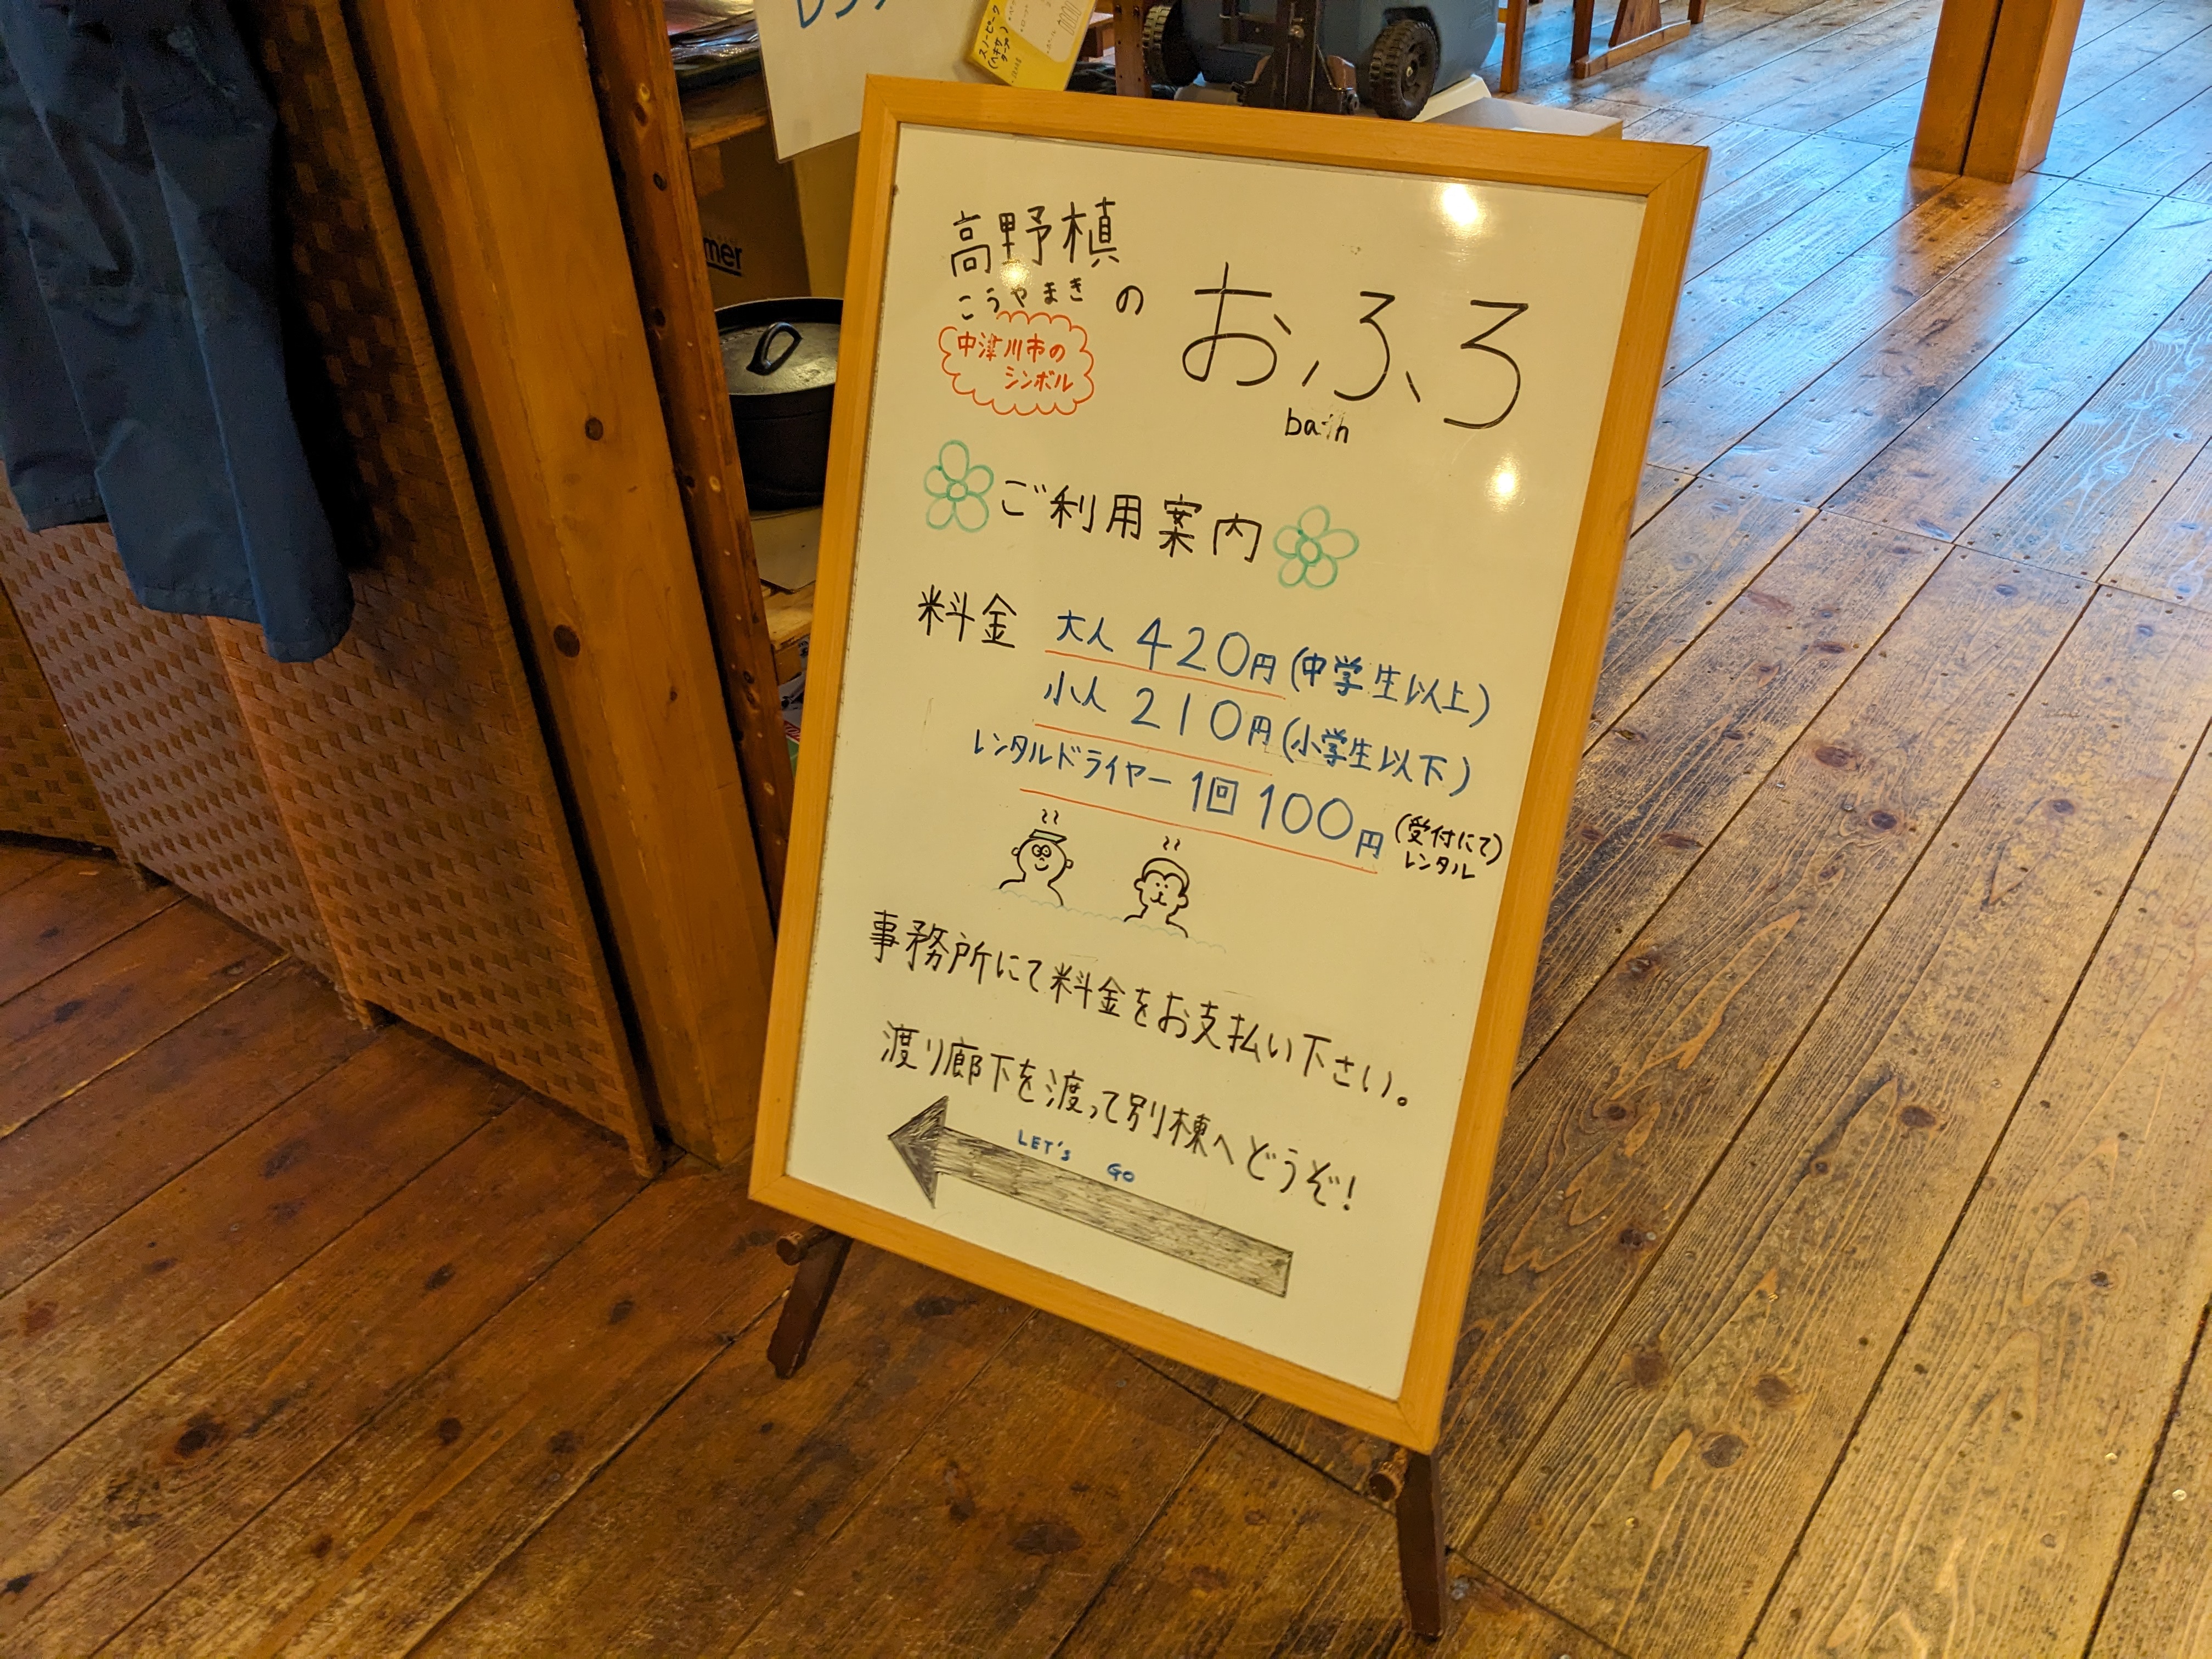 スノーピーク
(ヘキサ
タープ)
mer
高野槙
こうやまき
の おふろ
bath
中津川市の
シンボル
ご利用案内
料金 大人 420円(中学生以上)
小人 210円(小学生以下)
レンタルドライヤー 1回 100円 (受付にて)
レンタル
事務所にて料金をお支払い下さい。
渡り廊下を渡って別棟へどうぞ!
LET's GO